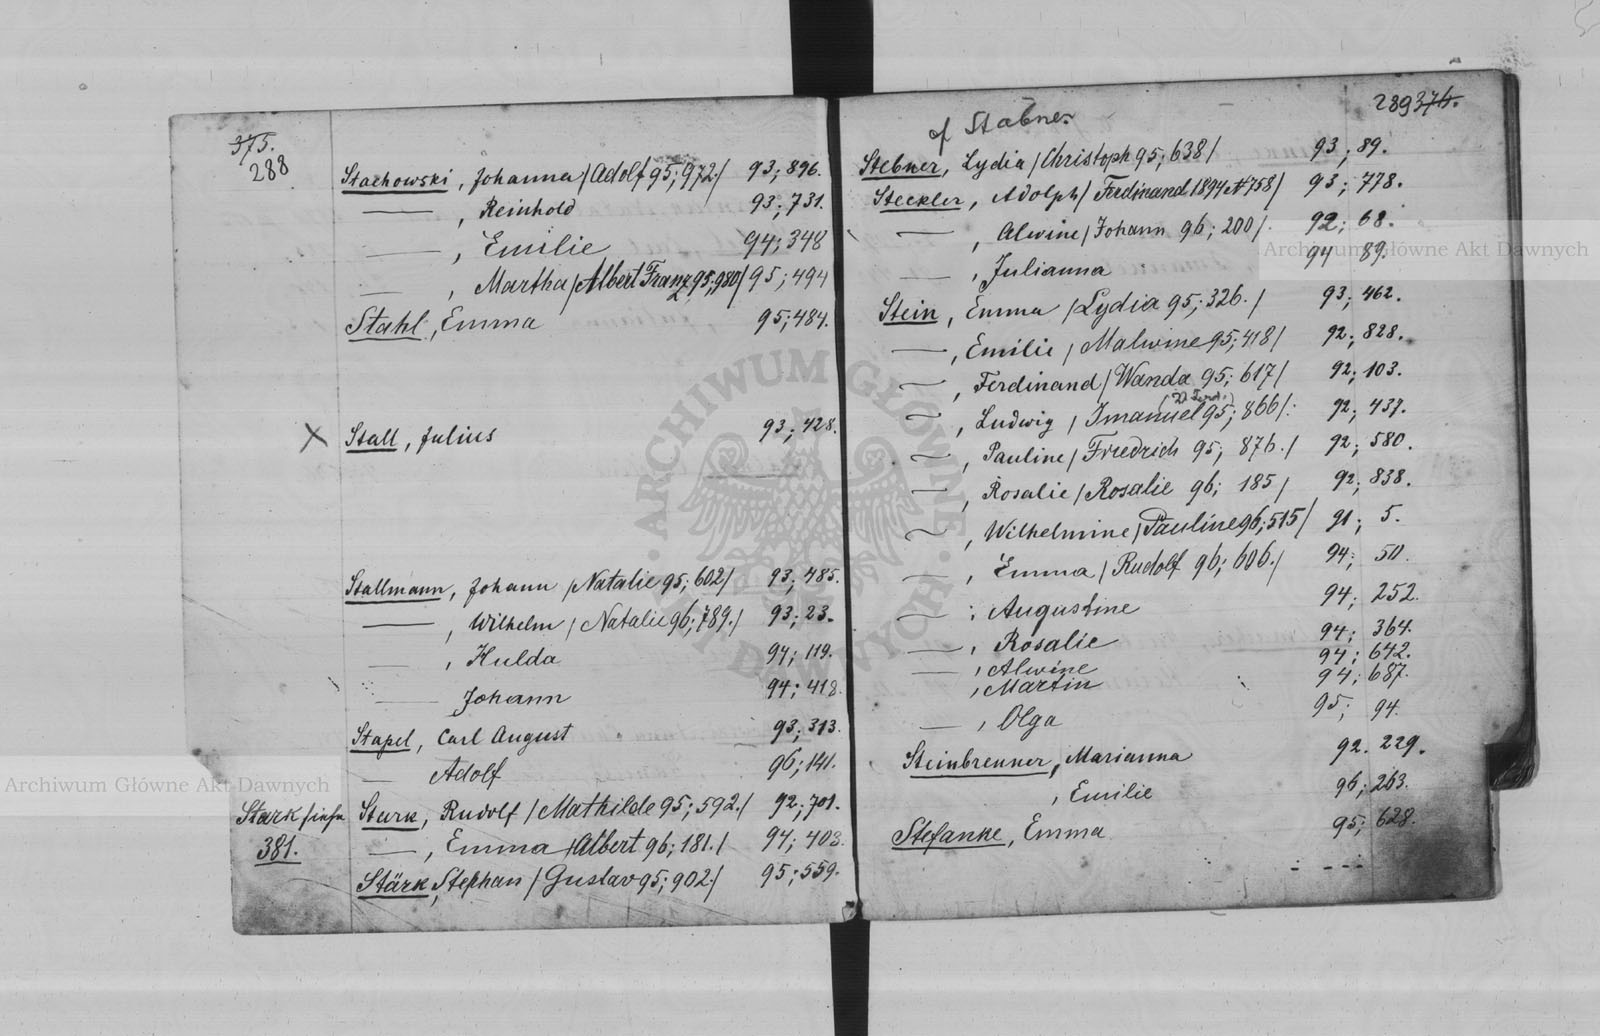 375.
288
Stachowski, Johanna /Adolf 95; 972/ 93; 896.
—, Reinhold 93; 731.
—, Emilie 94; 348
—, Martha /Albert Franz 95; 980/ 95; 494
Stahl, Emma 95; 484.
X Stall, Julius 93; 428.
Stallmann, Johann /Natalie 95; 602/ 93; 485.
—, Wilhelm /Natalie 96; 789./ 93; 23.
—, Hulda 94; 119.
— Johann 94; 418.
Stapel, Carl August 93; 313.
— Adolf 96; 141.
Stark siehe
381.
Stark, Rudolf /Mathilde 95; 592./ 92; 701.
—, Emma /Albert 96; 181./ 94; 403.
Stärk, Stephan /Gustav 95; 902./ 95; 559.
289 376.
cf Stabner
Stebner, Lydia /Christoph 95; 638/ 93; 89.
Steckler, Adolph /Ferdinand 1894 № 758/ 93; 778.
—, Alwine /Johann 96; 200/. 92; 68.
—, Julianna 94 89.
Stein, Emma /Lydia 95; 326./ 93; 462.
—, Emilie /Malwine 95; 418/ 92; 828.
—, Ferdinand /Wanda 95; 617/ 92; 103.
—, Ludwig /Imanuel 95; 866/: 92; 437.
—, Pauline /Friedrich 95; 876./ 92; 580.
—, Rosalie /Rosalie 96; 185/ 92; 838.
—, Wilhelmine /Pauline 96; 515/ 91; 5.
—, Emma /Rudolf 96; 606./ 94; 50.
—, Augustine 94; 252.
—, Rosalie 94; 364.
—, Alwine 94; 642.
, Martin 94; 687.
—, Olga 95; 94.
Steinbrenner, Marianna 92. 229.
, Emilie 96; 263.
Stefanke, Emma 95; 628.
Archiwum Główne Akt Dawnych
Archiwum Główne Akt Dawnych
ARCHIWUM GŁÓWNE AKT DAWNYCH